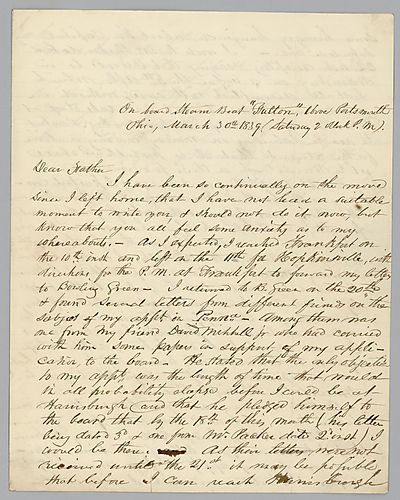 On board Steam Boat "Fulton", Above Portsmouth
Ohio, March 30th 1839 (Saturday 2 oclk P.M).
Dear Father
I have been so continually on the move
since I left home, that I have not had a suitable
moment to write you, & should not do it now, but
know that you all feel some anxiety as to my
whereabouts. - As I expected, I reached Frankfort on
the 10th inst and left on the 11th for Hopkinsville, with
directions for the P.M. at Frankfort to forward my letters
to Bowling Green - I returned to the Green on the 20th
& found several letters from different friends on the
subject of my appt in Penna - Among them was
one from my friend David Mitchell Jr who had carried
with him some papers in support of my appli-
cation to the board - He stated that the only objection
to my appt was the length of time that would
in all probability elapse before I could be at
Harrisburgh (and that he pledged himself to
the board that by the 15th of this month (his letter
being dated 3d & one from Mr Packer dated 2d inst) I
would be there. As their letters were not
received until the 21st it may be possible
that before I can reach Harrisburgh